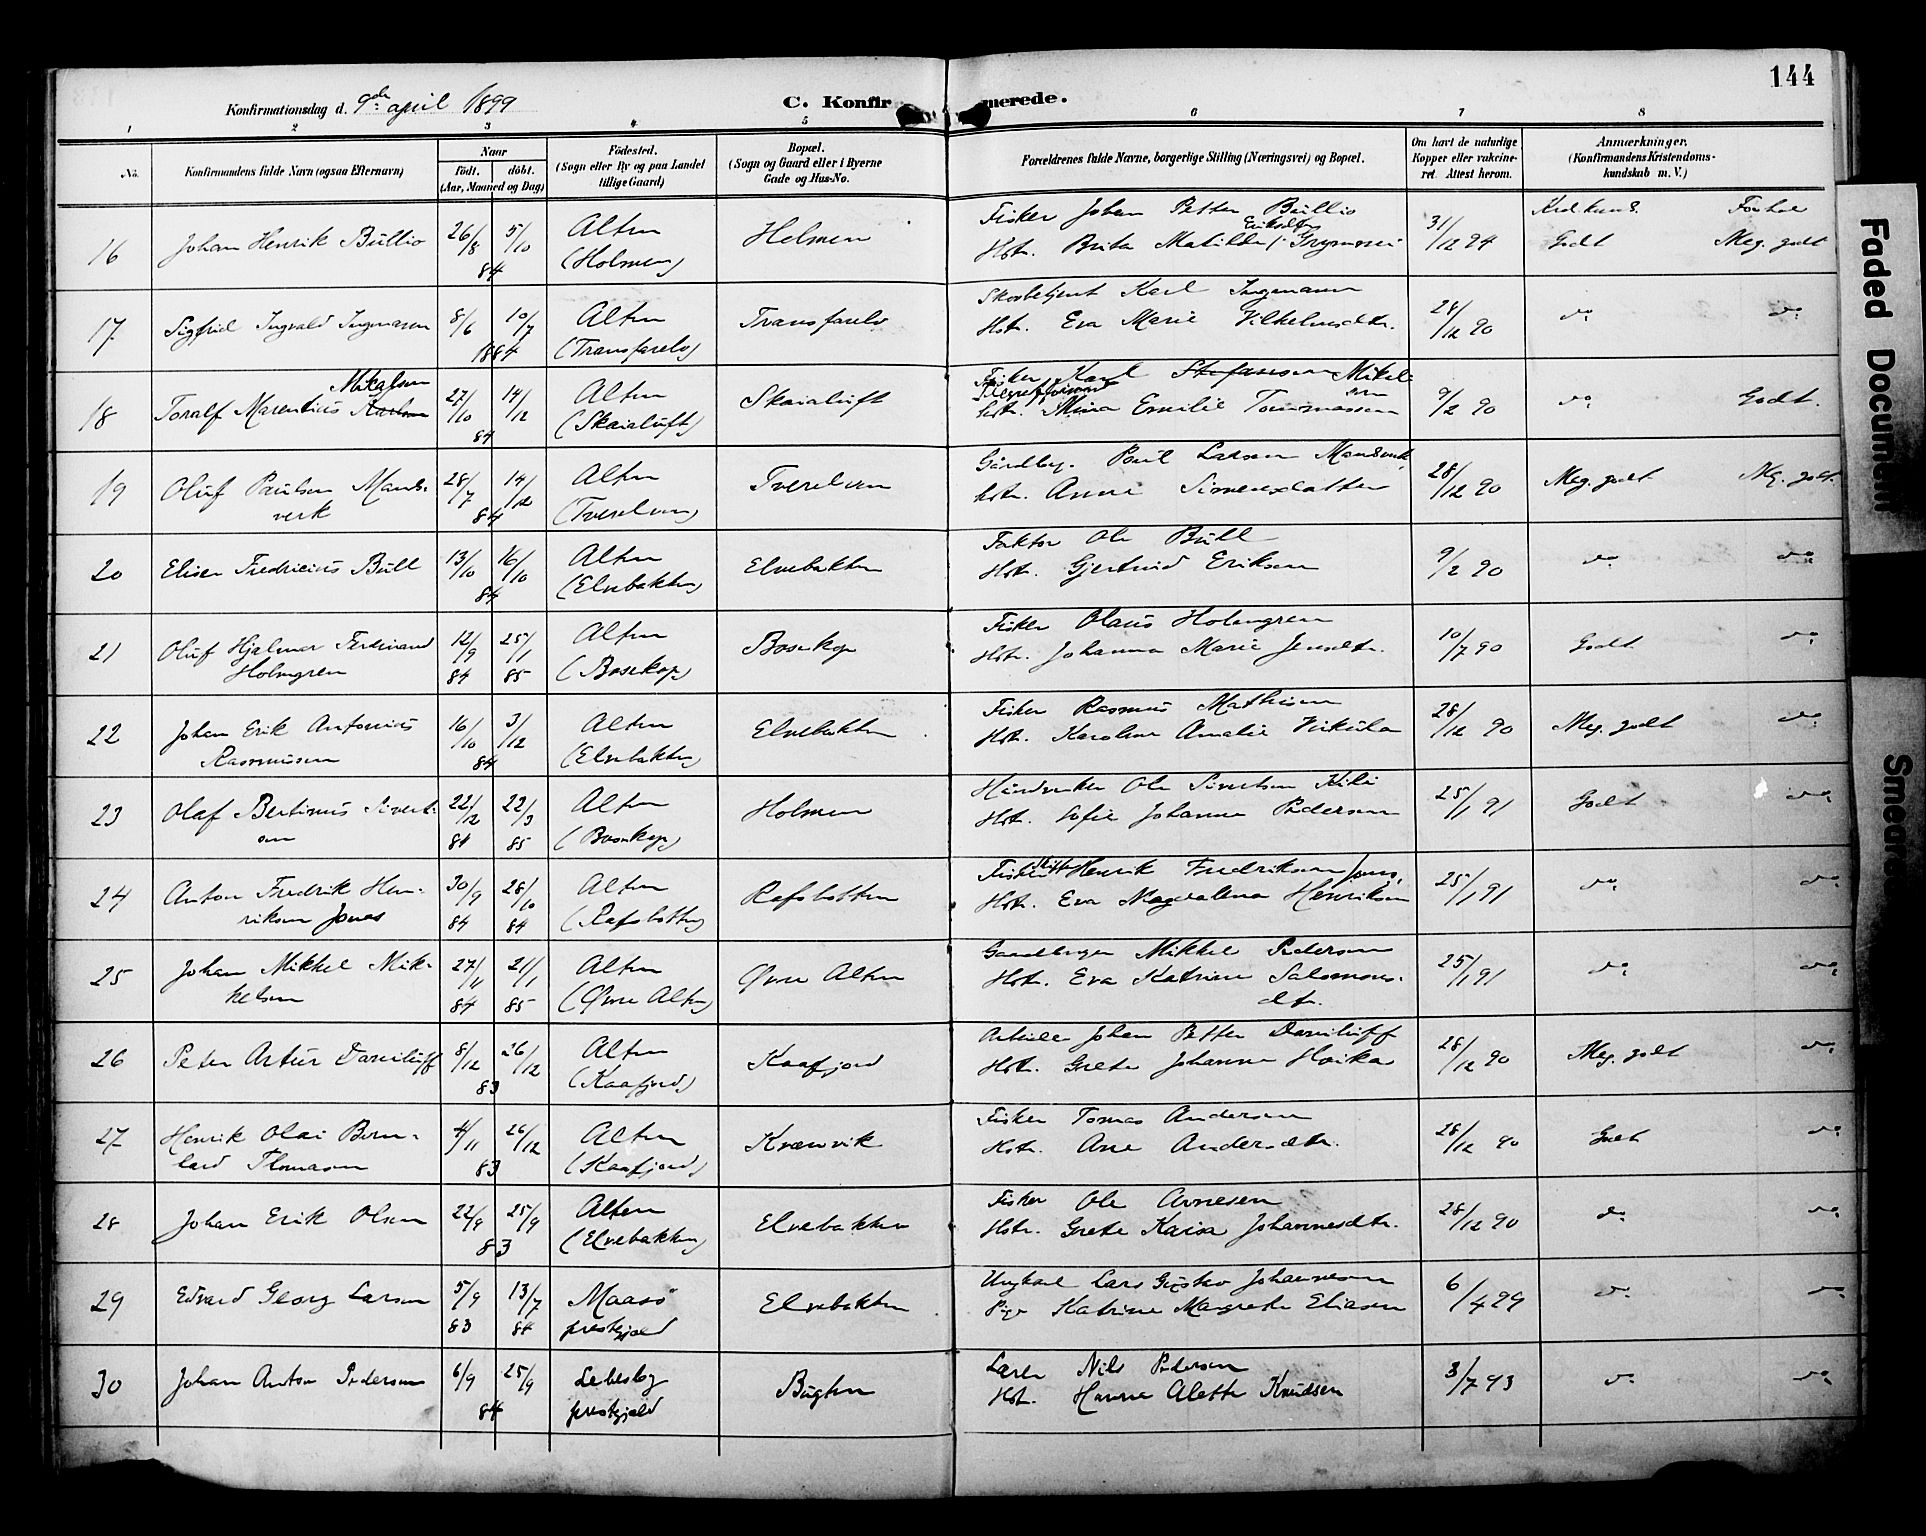 144
Konfirmationsdag d. 9de april 1899
C. Konfirmerede.
1 2 3 4 5 6 7 8
No.
Konfirmandens fulde Navn (ogsaa Efternavn)
Naar
födt. döbt.
(Aar, Maaned og Dag)
Födested.
(Sogn eller By og paa Landet
tillige Gaard)
Bopæl.
(Sogn og Gaard eller i Byerne
Gade og Hus-No.
Forældrenes fulde Navne, borgerlige Stilling (Næringsvei) og Bopæl.
Om havt de naturlige
Kopper eller vakcine-
ret. Attest herom.
Anmærkninger.
(Konfirmandens Kristendoms-
kundskab m. V.)
Krd. kund. Forhol
16 Johan Henrik Bullio 26/8 5/10 84 Alten (Holmen) Holmen
Fisker Johan Petter Bullio
Hstr. Brita Matilde
31/12 94 Godt Meg. godt
17 Sigfrid Ingvald Ingmarsen 8/6 10/7 1884 Alten (Transfarelv) Transfarelv
Karl Ingemann
Hstr. Eva Marie Vilhelmsdtr.
28/12 90 do do
18 Toralf Marentius Karlsen Mikalsen 27/10 14/12 84 Alten (Skaialuft) Skaialuft
Fisker Karl Stefansen Mikelsen
hstr. Mina Emilie Tommassen
9/2 90 do Godt.
19 Oluf Paulsen Mands-
verk 28/7 14/12 84 Alten (Tverelven) Tverelven
Gårdbr. Paul Larsen Mandsverk,
hstr. Anne Simensdatter
28/12 90 Meg. godt Mg. godt.
20 Eliser Fredricius Bull 13/10 16/10 84 Alten (Elvebakken) Elvebakken
Faktor Ole Bull
Hstr. Gjertrud Eriksen
9/2 90 do do
21 Oluf Hjalmar Ferdinand
Holmgren 12/9 84 25/1 85 Alten (Bosekop) Bosekop
Fisker Olaus Holmgren
Hstr. Johanna Marie Jensdtr.
10/7 90 Godt do
22 Johan Erik Antonius
Rasmussen 16/10 3/12 84 Alten (Elvebakken) Elvebakken
Fisker Rasmus Mathisen
Hstr. Karoline Amalie
28/12 90 Meg. godt do
23 Olaf Bertinus Sivert-
sen 22/12 84 22/3 85 Alten (Bosekop) Holmen
Håndverker Ole Sivertsen Kili
Hstr. Sofie Johanne Pedersen
25/1 91 Godt do
24 Anton Fredrik Hen-
riksen Jonas 30/9 84 28/10 84 Alten (Rafsbotten) Rafsbotten
Fisker Henrik Fredriksen Jonas,
Hstr. Eva Magdalena Henriksen
25/1 91 do do
25 Johan Mikkel Mik-
kelsen 27/11 84 21/1 85 Alten (Øvre Alten) Øvre Alten
Gaardbruger Mikkel Pedersen
Hstr. Eva Katrine Salomons-
dtr.
25/1 91 do do
26 Peter Artur Daniloff 8/12 26/12 83 Alten (Kaafjord) Kaafjord
Arbeider Johan Petter Daniloff
Hstr. Grete Johanne Hoika
28/12 90 Meg. godt do
27 Henrik Olai Bern-
hard Thomasen 4/11 26/12 83 Alten (Kaafjord) Kvænvik
Fisker Tomas Andersen
Hstr. Ane Andersdtr.
28/12 90 Godt do
28 Johan Erik Olsen 22/9 25/9 83 Alten (Elvebakken) Elvebakken
Fisker Ole Arnesen
Hstr. Grete Kaisa Johannesdtr.
28/12 90 do do
29 Edvard Georg Larsen 5/9 83 13/7 84 Maasø
prestgjæld Elvebakken
Ungkarl Lars Gustav Johannesen
Pige Katrine Margrete Eliasen
6/4 99 do do
30 Johan Anton Pedersen 6/9 25/9 84 Lebesby
prestgjæld Bugten
Lærer Nils Pedersen
Hstr. Hanne Alette Knudsen
3/7 93 do do
Faded Document
Smeared